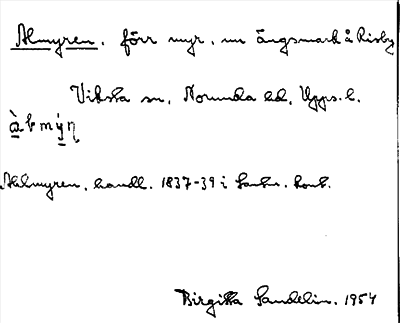 Almyren. förr myr. nu ängsmark å Risby
Viksta sn, Norunda hd, Upps. l.
àbmýŋ
Ahlmyren, handl. 1837-39 i Lantm. kont.
Birgitta Sandelin. 1954